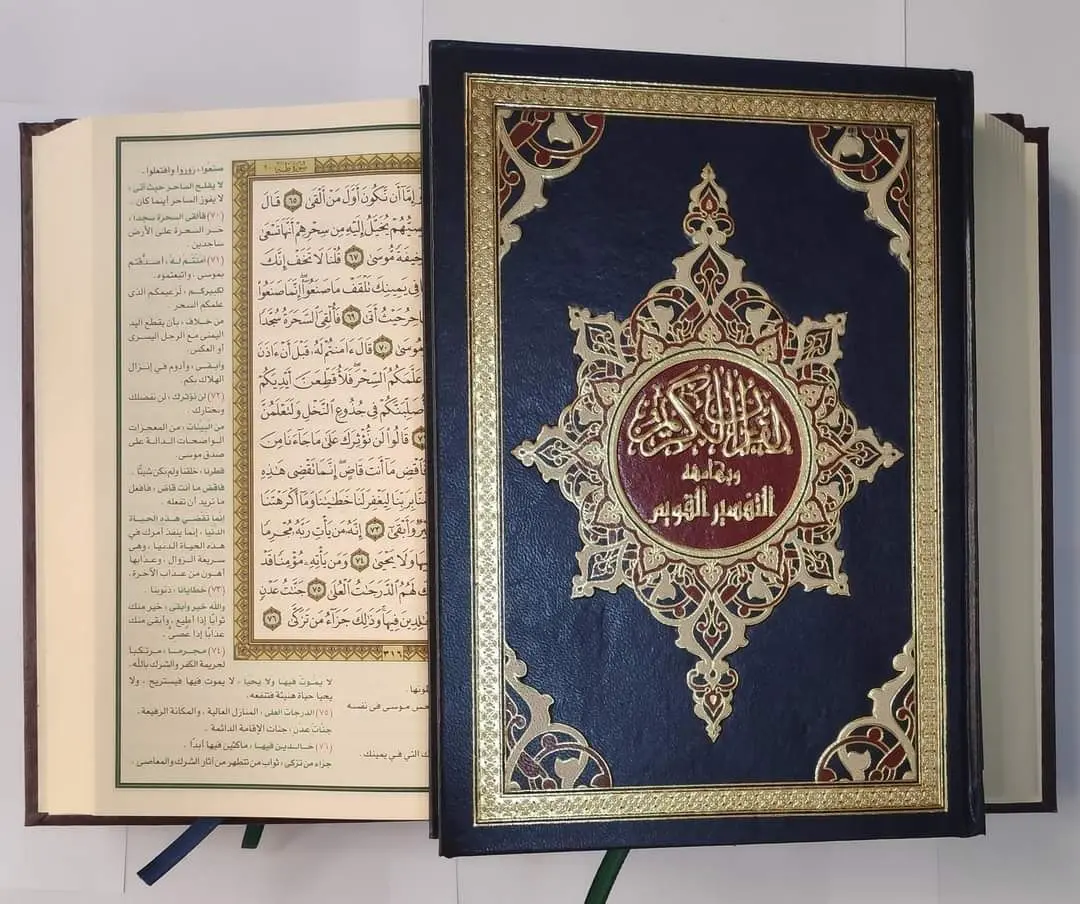 القرآن الكريم
وبهامشه
التفسير القويم
سورة طه
وإما أن نكون أول من ألقى ٦٥ قال
يخيل إليه من سحرهم أنها تسعى
خيفة موسى ٦٧ قلنا لا تخف إنك
في يمينك تلقف ما صنعوا إنما صنعوا
حيث أتى ٦٩ فألقي السحرة سجدا
موسى ٧٠ قال ءامنتم له قبل أن ءاذن
علمكم السحر فلأقطعن أيديكم
في جذوع النخل ولتعلمن
قالوا لن نؤثرك على ما جاءنا من
فاقض ما أنت قاض إنما تقضي هذه
بربنا ليغفر لنا خطيانا وما أكرهتنا
وأبقى ٧٣ إنه من يأت ربه مجرما
ولا يحيى ٧٤ ومن يأته مؤمنا قد
لهم الدرجت العلى ٧٥ جنت عدن
خلدين فيها وذلك جزاء من تزكى ٧٦
٣١٦
صنعوا، زوروا وافتعلوا.
لا يفلح الساحر حيث أتى،
لا يفوز الساحر أينما كان.
(٧٠) فألقي السحرة سجدا،
خر السحرة على الأرض
ساجدين.
(٧١) آمنتم له، أصدقتم
بموسى، واتبعتموه.
لكبيركم، لزعيمكم الذي
علمكم السحر.
من خلاف، بأن يقطع اليد
اليمنى مع الرجل اليسرى
أو العكس.
وأبقى، وأدوم في إنزال
الهلاك بكم.
(٧٢) لن نؤثرك، لن نفضلك
ونختارك.
من البينات، من المعجزات
الواضحات الدالة على
صدق موسى.
فطرنا، خلقنا ولم نكن شيئًا.
فاقض ما أنت قاض، فافعل
ما تريد أن تفعله.
إنما تقضي هذه الحياة
الدنيا، إنما ينفذ أمرك في
هذه الحياة الدنيا، وهي
سريعة الزوال، وعذابها
أهون من عذاب الآخرة.
(٧٣) خطايانا، ذنوبنا.
والله خير وأبقى، خير منك
ثوابا إذا أطيع، وأبقى منك
عذابا إذا عصي.
(٧٤) مجرما، مرتكبا
لجريمة الكفر والشرك بالله.
لا يموت فيها ولا يحيا، لا يموت فيها فيستريح، ولا
يحيا حياة هنيئة فتنفعه.
(٧٥) الدرجات العلى، المنازل العالية، والمكانة الرفيعة.
جنات عدن، جنات الإقامة الدائمة.
(٧٦) خالدين فيها، ماكثين فيها أبدًا.
جزاء من تزكى، ثواب من تتطهر من آثار الشرك والمعاصي.
موسى في نفسه
التي في يمينك.